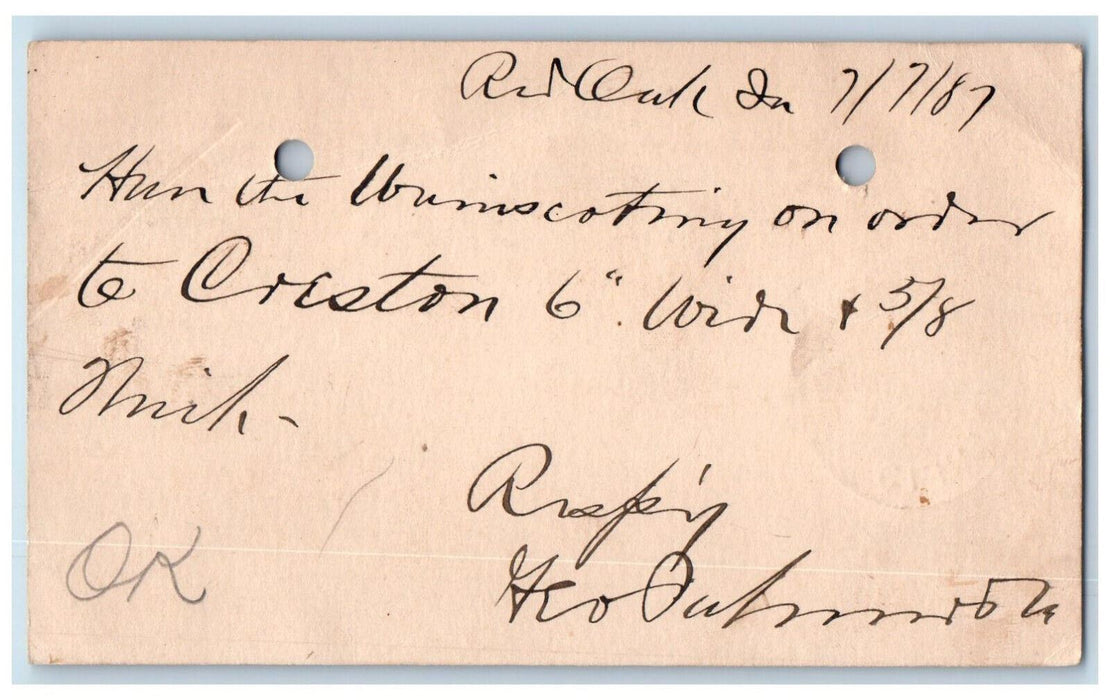 Red Oak Ia 7/7/87
Have the Wainscoting on order
to Creston 6" Wide & 5/8
Thick -
Resp'y
Geo
OK